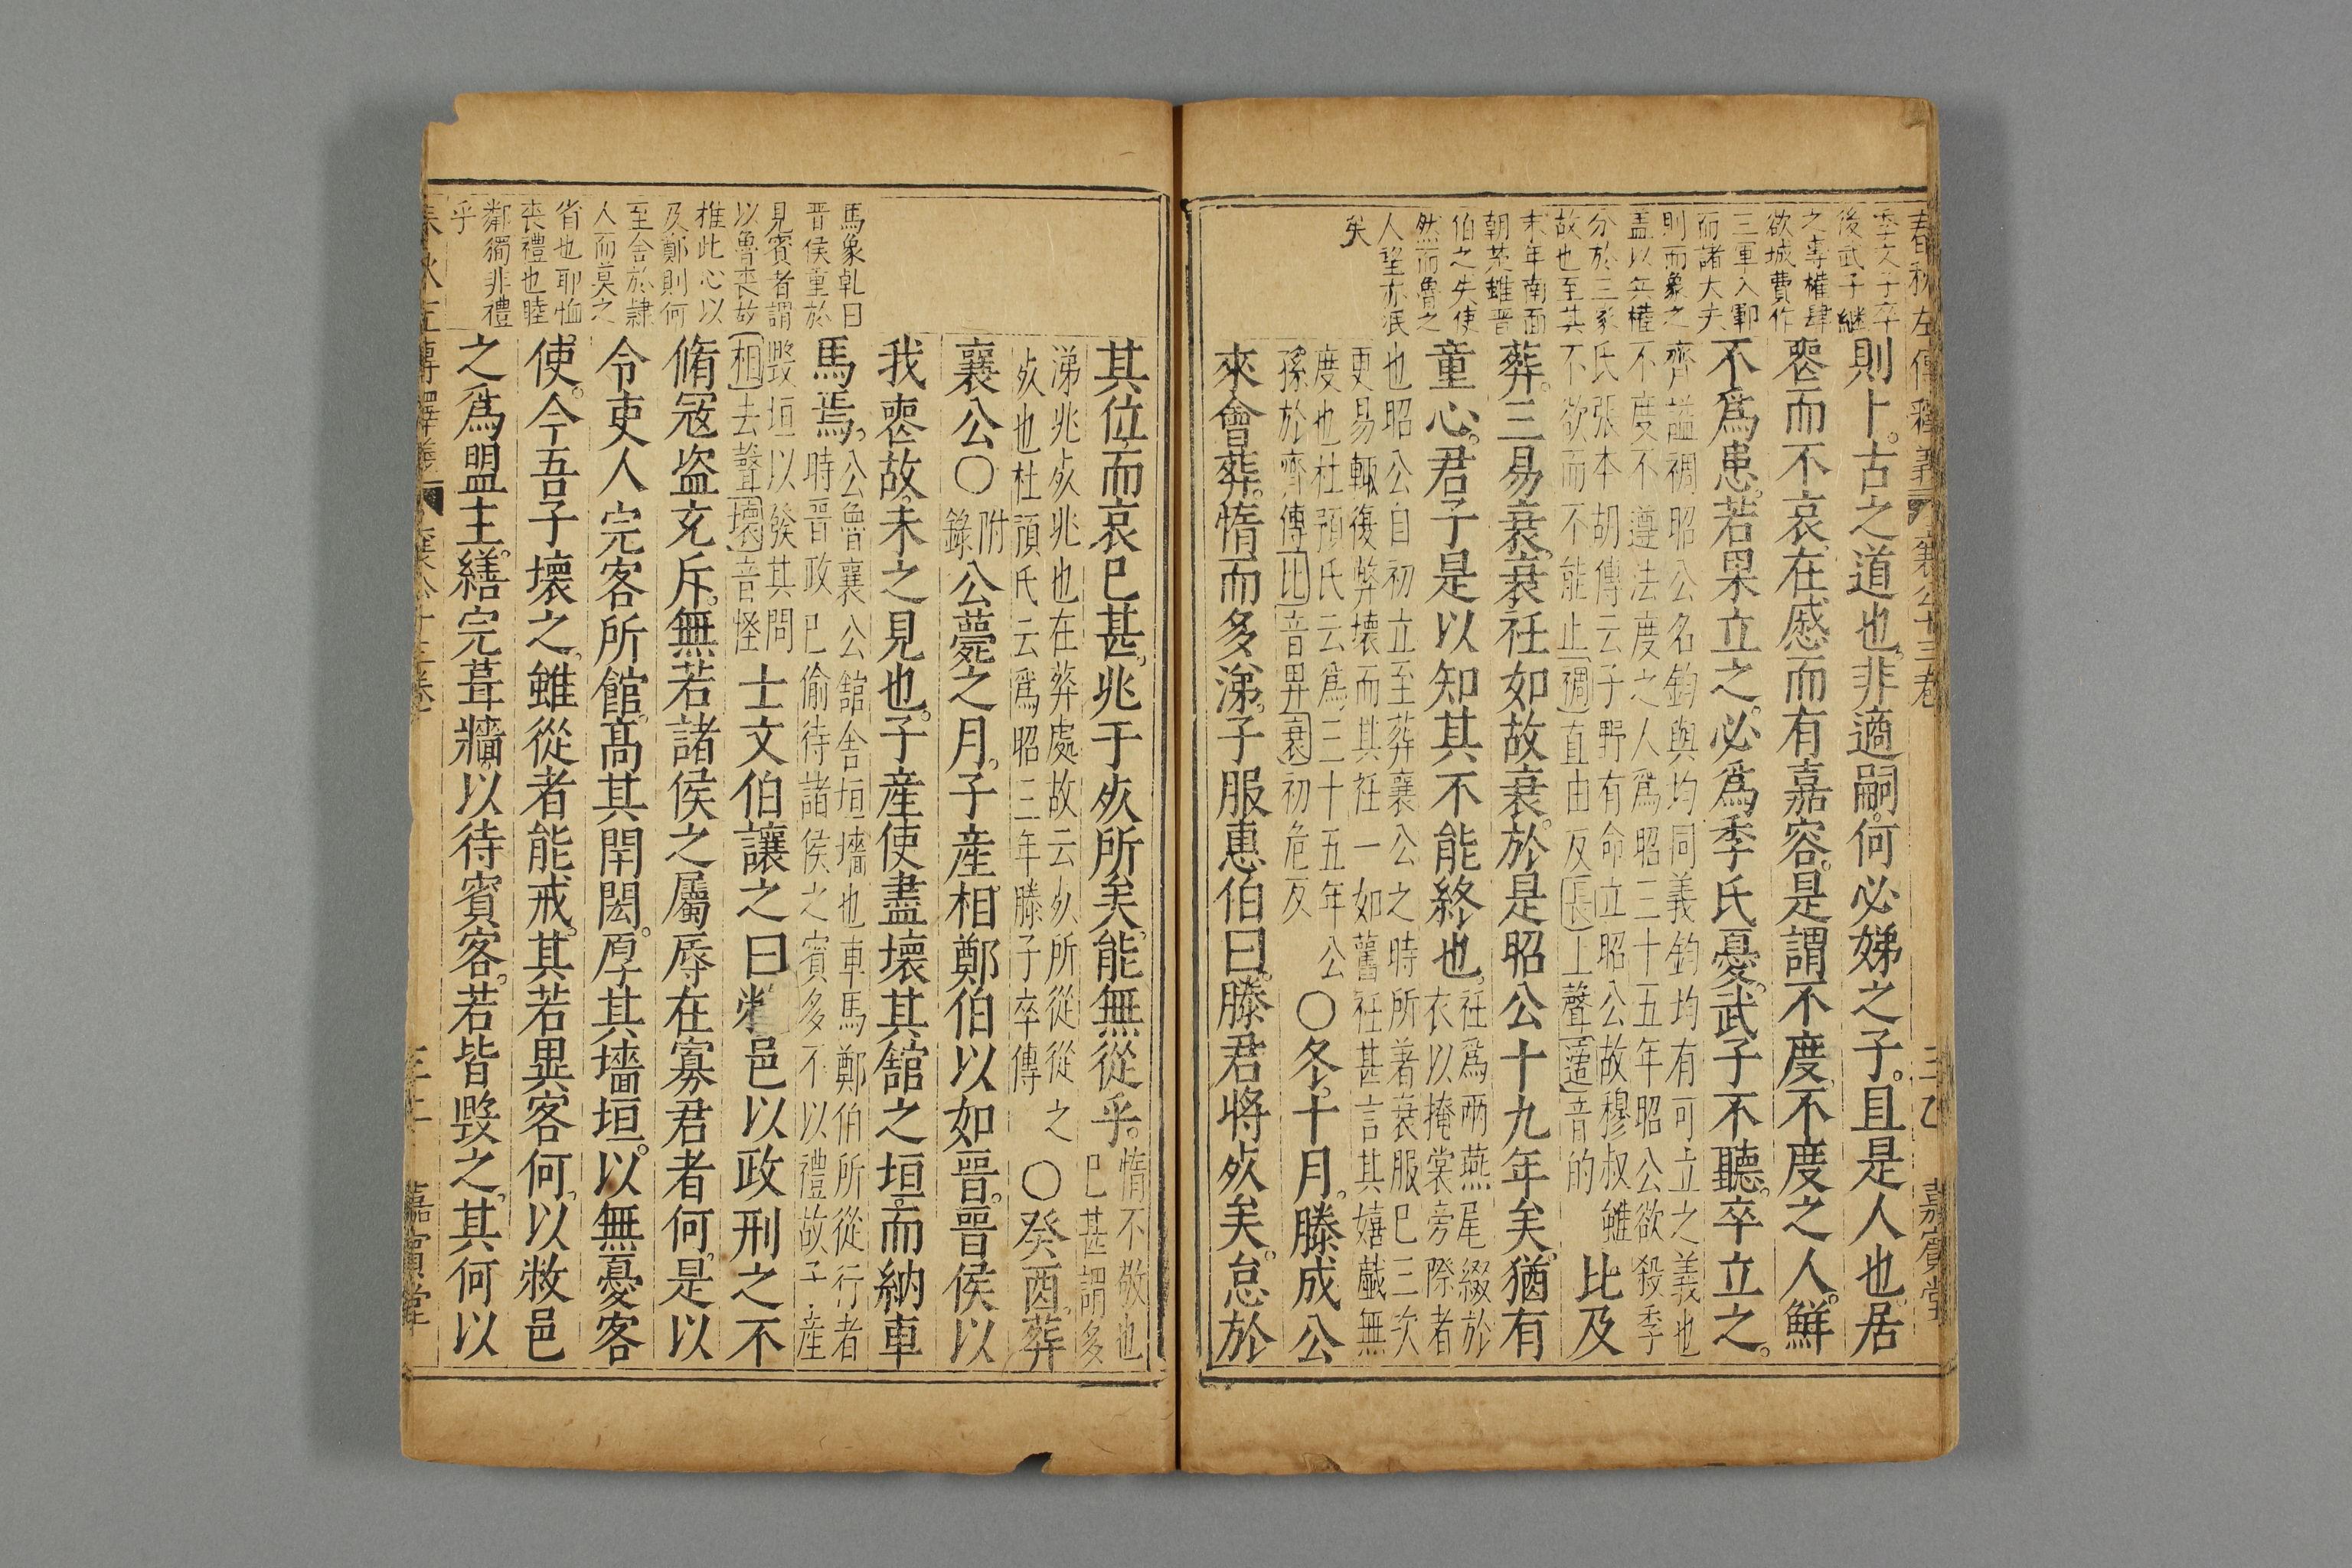 春秋左傳釋義 襄公十三卷 嘉賓堂
季文子卒
後武子継
之專權肆
欲城費作
三軍入鄆
而諸大夫
則而象之
盖以兵權
分於三家
故也至其
末年南面
朝楚雖晋
伯之失使
然而魯之
人望亦泯
矣
則卜古之道也非適嗣何必娣之子且是人也居
喪而不哀在慼而有嘉容是謂不度不度之人鮮
不爲患若果立之必爲季氏憂武子不聽卒立之
齊謚裯昭公名鈞與均同義鈞均有可立之義也
不度不遵法度之人爲昭二十五年昭公欲殺季
氏張本胡傳云子野有命立昭公故穆叔雖
不欲而不能止裯直由反長上聲適音的
比及
葬三易衰衰衽如故衰於是昭公十九年矣猶有
童心君子是以知其不能終也
衽爲兩燕尾綴於
衣以掩裳旁際者
也昭公自初立至葬襄公之時所著衰服已三次
更易輒復弊壞而其衽一如舊衽甚言其嬉戲無
度也杜預氏云爲二十五年公
孫於齊傳比音畀衰初危反
〇冬十月滕成公
來會葬惰而多涕子服惠伯曰滕君将死矣怠於
其位而哀已甚兆于死所矣能無從乎
惰不敬也
已甚謂多
涕兆死兆也在葬處故云死所從從之
死也杜預氏云爲昭三年滕子卒傳
〇癸酉葬
襄公〇附錄公薨之月子産相鄭伯以如晋晋侯以
我喪故未之見也子産使盡壞其舘之垣而納車
馬焉
公魯襄公舘舍垣墻也車馬鄭伯所從行者
時晋政已偷待諸侯之賓多不以禮故子産
毁垣以發其問
相去聲壞音怪
士文伯讓之曰邑以政刑之不
脩寇盗充斥無若諸侯之屬辱在寡君者何是以
令吏人完客所館高其閈閎厚其墻垣以無憂客
使今吾子壞之雖從者能戒其若異客何以敝邑
之爲盟主繕完葺牆以待賓客若皆毁之其何以
馬象乹曰
晋侯重於
見賓者謂
以魯喪故
推此心以
及鄭則何
至舍於隷
人而莫之
省也耶恤
丧禮也睦
鄰獨非禮
乎
嘉賓堂